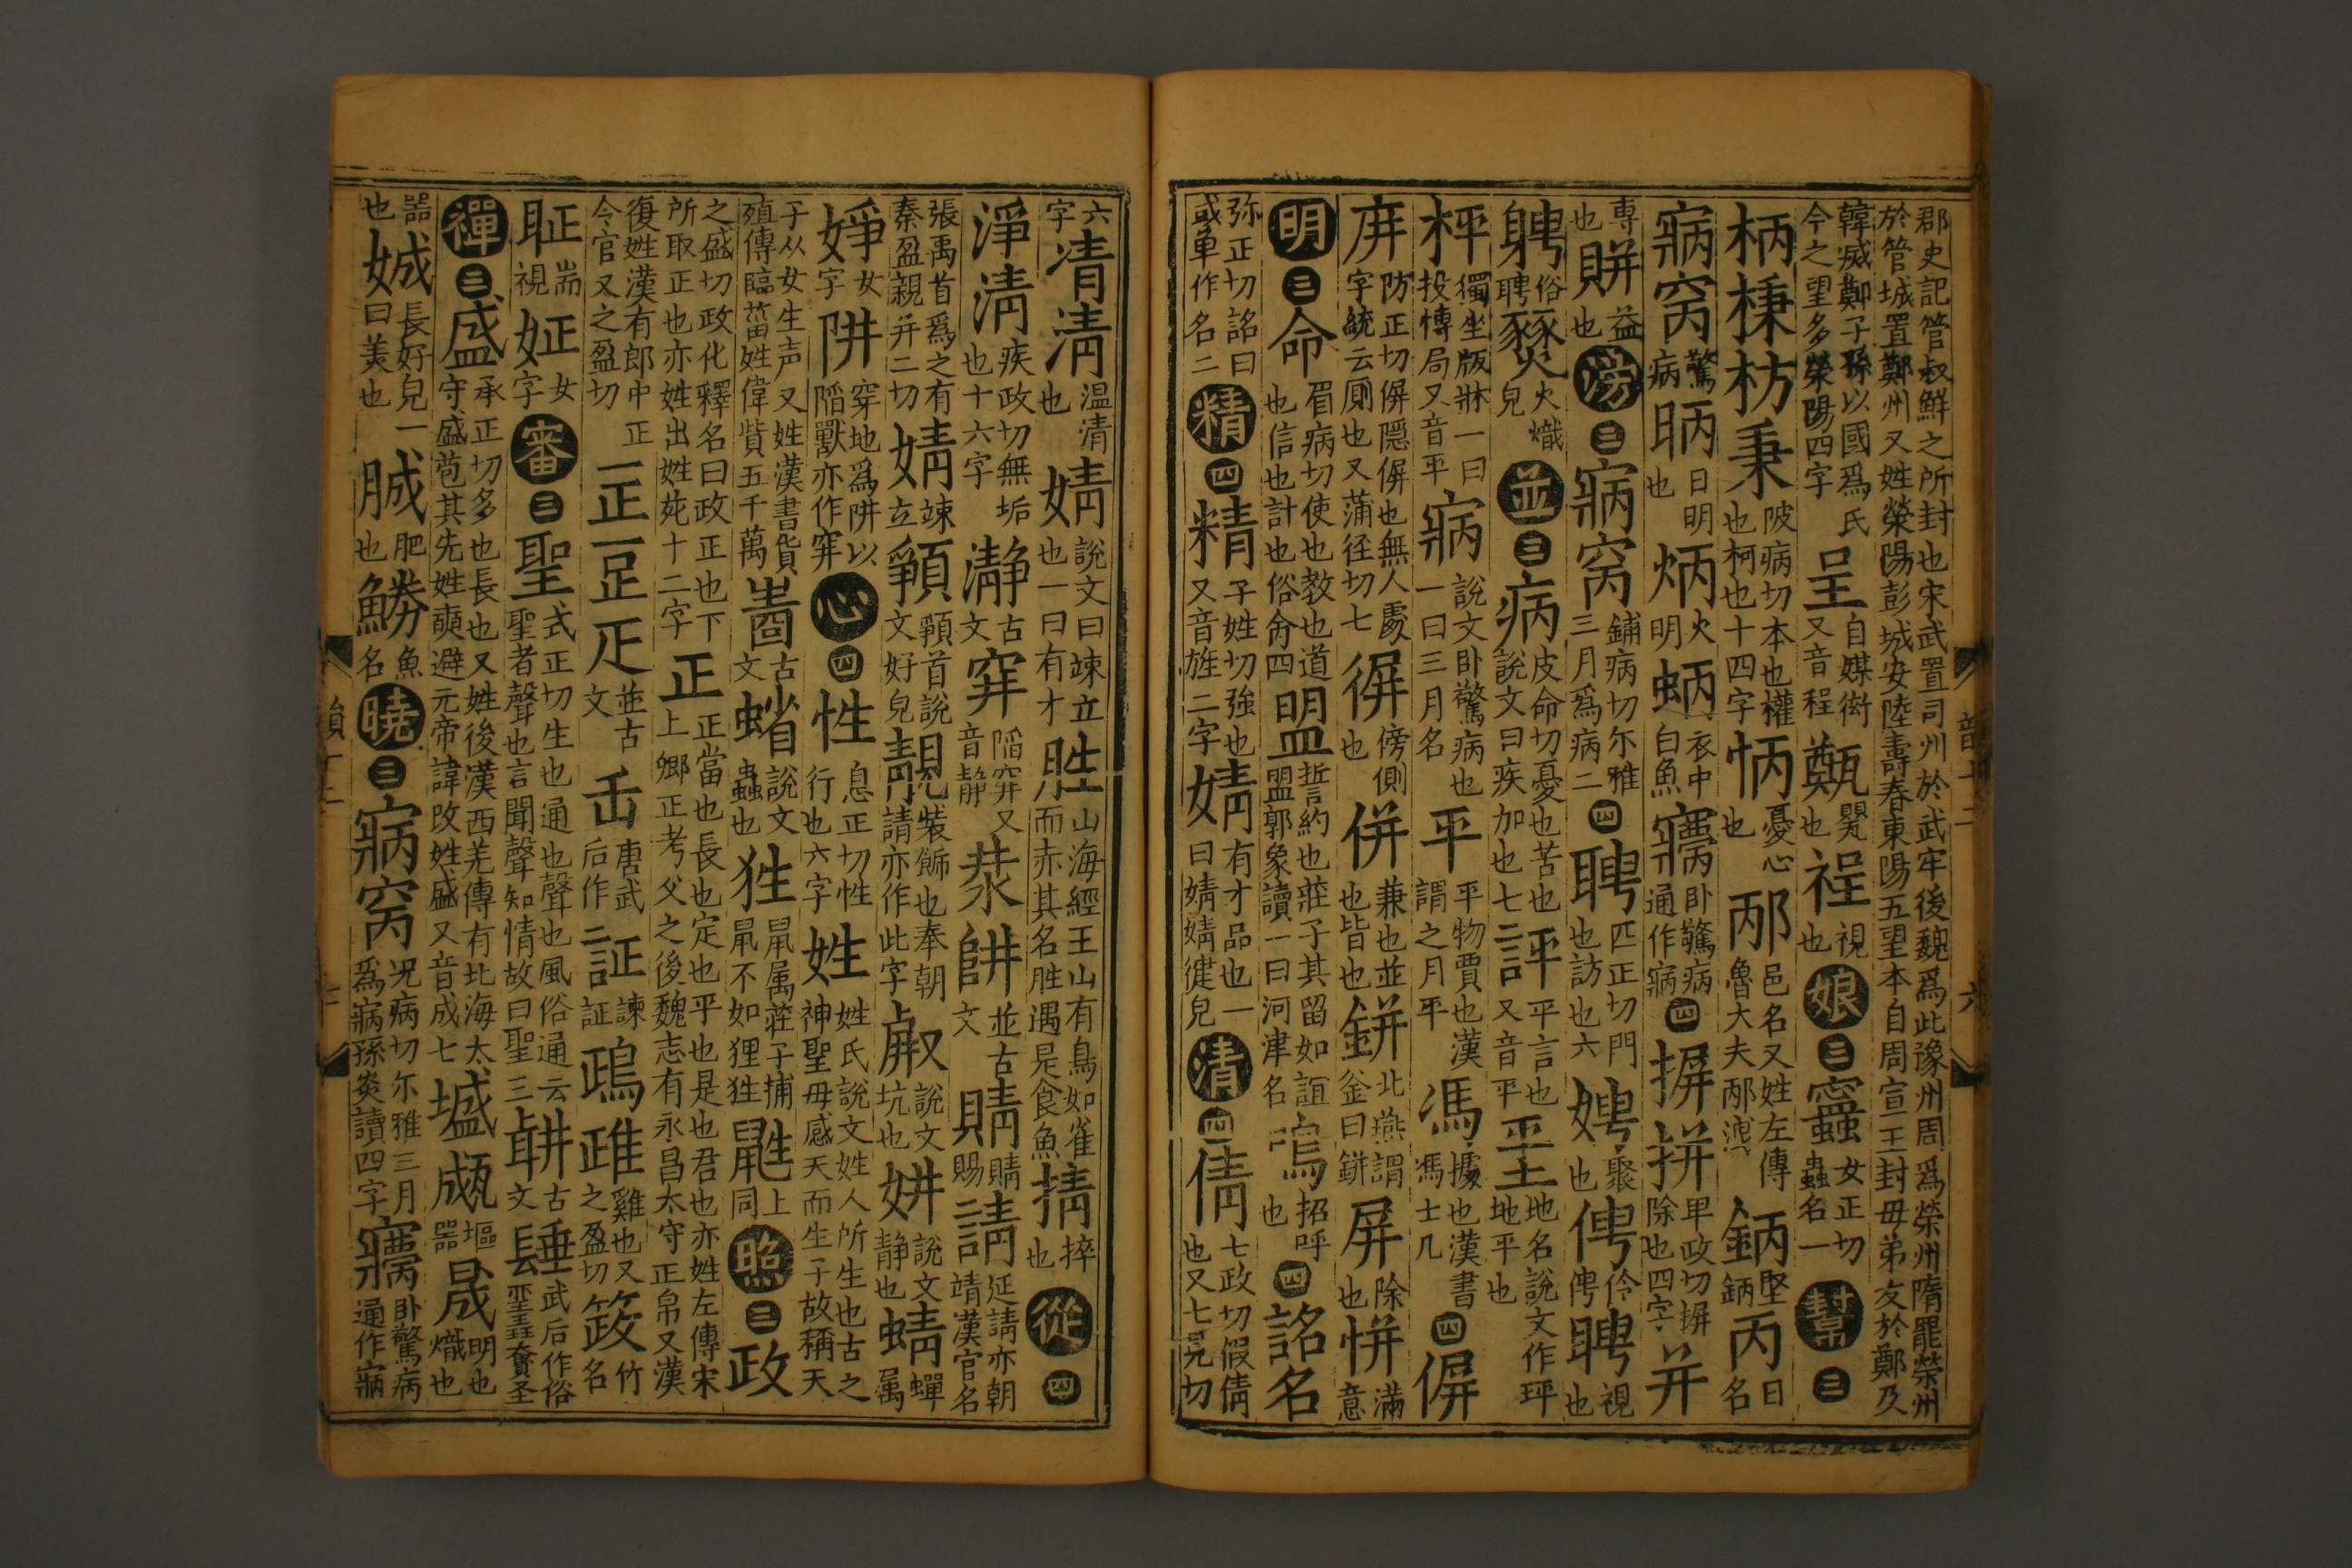 郡史記管叔鮮之所封也宋武置司州於武牢後魏爲此豫州周爲滎州隋罷滎州
於管城置鄭州又姓滎陽彭城安陸壽春東陽五望本自周宣王封母弟友於鄭及
韓滅鄭子孫以國爲氏今之望多滎陽四字呈自媒衒又音程甄甖也裎視也娘三𥧲女正切蟲名一幫三
柄棅枋秉陂病切本也權也柯也十四字怲憂心也邴邑名又姓左傳魯大夫邴洩鈵堅鈵丙日名
寎窉驚病昞日明也炳火明蛃衣中白魚㝱卧驚病通作寎四摒拼畀政切摒除也四字并
專也賆益也滂三寎窉鋪病切尔雅三月爲病二四聘匹正切門也訪也六娉娶也俜伶俜聘視也
聘俗聘㷄火熾皃並三病皮命切憂也苦也說文曰疾加也七評平言也又音平坙地名說文作坪地平也
枰獨坐版牀一曰投博局又音平寎說文卧驚病也一曰三月名平平物賈也漢謂之月平馮據也漢書馮士几四偋
庰防正切偋隱偋也無人處字統云廁也又蒲徑切七䔊傍側也併兼也並也皆也鉼北燕謂釜曰鉼屏除也恲滿意
明三命眉病切使也教也道也信也計也俗肏四盟誓約也莊子其留如詛盟郭象讀一曰河津名𠳟招呼也四詺名
弥正切詺曰或單作名二精四精子姓切強也又音旌二字婧有才品也一曰婧婧徤皃清四倩七政切假倩也又七見切
六字凊清温凊也婧說文曰竦立也一曰有才胜山海經王山有鳥如雀而赤其名胜遇是食魚掅捽也從四
淨凊疾政切無垢也十六字瀞古文穽陷穽又音静汬阱並古文䝼䝼賜請延請亦朝請漢官名
張禹首爲之有秦盈親并二切婧竦立顭顭首說文好皃靚裝飾也奉朝請亦作此字𠭊說文坑也妌說文静也蜻蟬属
婙女字阱穿地爲阱以陷獸亦作穽心四性息正切性行也六字姓姓氏說文姓人所生也古之神聖母感天而生子故稱天
子从女生声又姓漢書貨殖傳臨菑姓偉貲五千萬𤯓古文蛸說文蟲也狌鼠属莊子捕鼠不如狸狌鼪上同照三政
之盛切政化釋名曰政正也下所取正也亦姓出姓苑十二字正正當也長也定也平也是也君也亦姓左傳宋上卿正考父之後魏志有永昌太守正帛又漢
復姓漢有郎中正令官又之盈切正𤴓𤴔並古文𠙺唐武后作証諫証鴊鴊雞也又之盈切䇣竹名
眐耑視姃女字審三聖式正切生也通也聲也風俗通云聖者聲也言聞聲知情故曰聖三𦕡古文𨲢武后作俗
禪三盛承正切多也長也又姓後漢西羌傳有北海太守盛苞其先姓奭避元帝諱改姓盛又音成七墭𤮢器墭晟明也熾也
器也娍長好皃一曰美也䏈肥也䲼魚名曉三寎窉况病切尔雅三月爲病孫炎讀四字㝱卧驚病通作寎